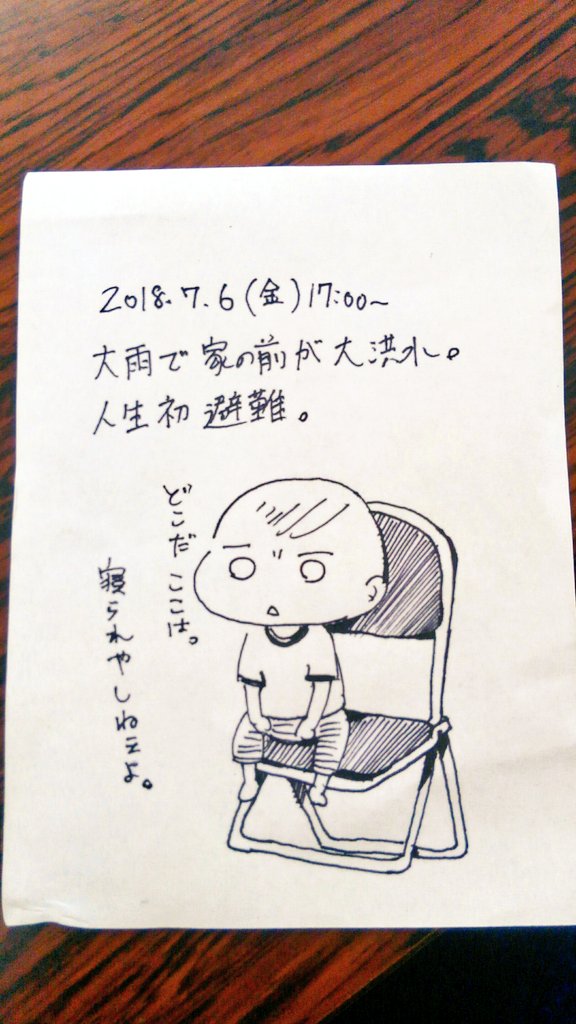 2018.7.6(金)17:00~
大雨で家の前が大洪水。
人生初避難。
どこだここは。
寝られやしねえよ。